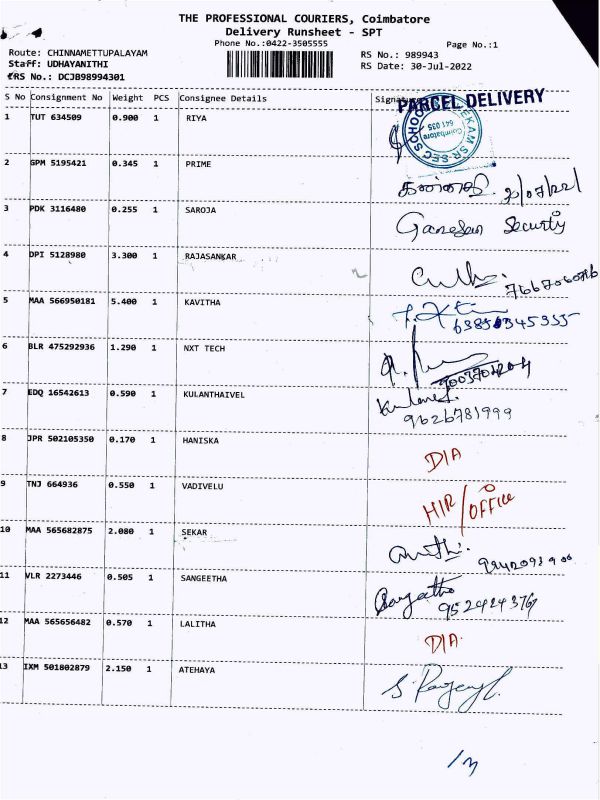 THE PROFESSIONAL COURIERS, Coimbatore
Delivery Runsheet - SPT
Phone No.:0422-3505555
Page No.:1
Route: CHINNAMETTUPALAYAM
RS No.: 989943
Staff: UDHAYANITHI
RS Date: 30-Jul-2022
RS No.: DCJB98994301
S No Consignment No Weight PCS Consignee Details
PARCEL DELIVERY
1 TUT 634509 0.900 1 RIYA
Coimbatore
641 035
2 GPM 5195421 0.345 1 PRIME
3 PDK 3116480 0.255 1 SAROJA Ganesan Security
4 DPI 5128980 3.300 1 RAJASANKAR
5 MAA 566950181 5.400 1 KAVITHA
6 BLR 475292936 1.290 1 NXT TECH
7 EDQ 16542613 0.590 1 KULANTHAIVEL
9626781999
8 JPR 502105350 0.170 1 HANISKA DIA
9 TNJ 664936 0.550 1 VADIVELU HIR/OFFICE
10 MAA 565682875 2.080 1 SEKAR
11 VLR 2273446 0.505 1 SANGEETHA Sangeetha
12 MAA 565656482 0.570 1 LALITHA DIA
13 IXM 501802879 2.150 1 ATEHAYA